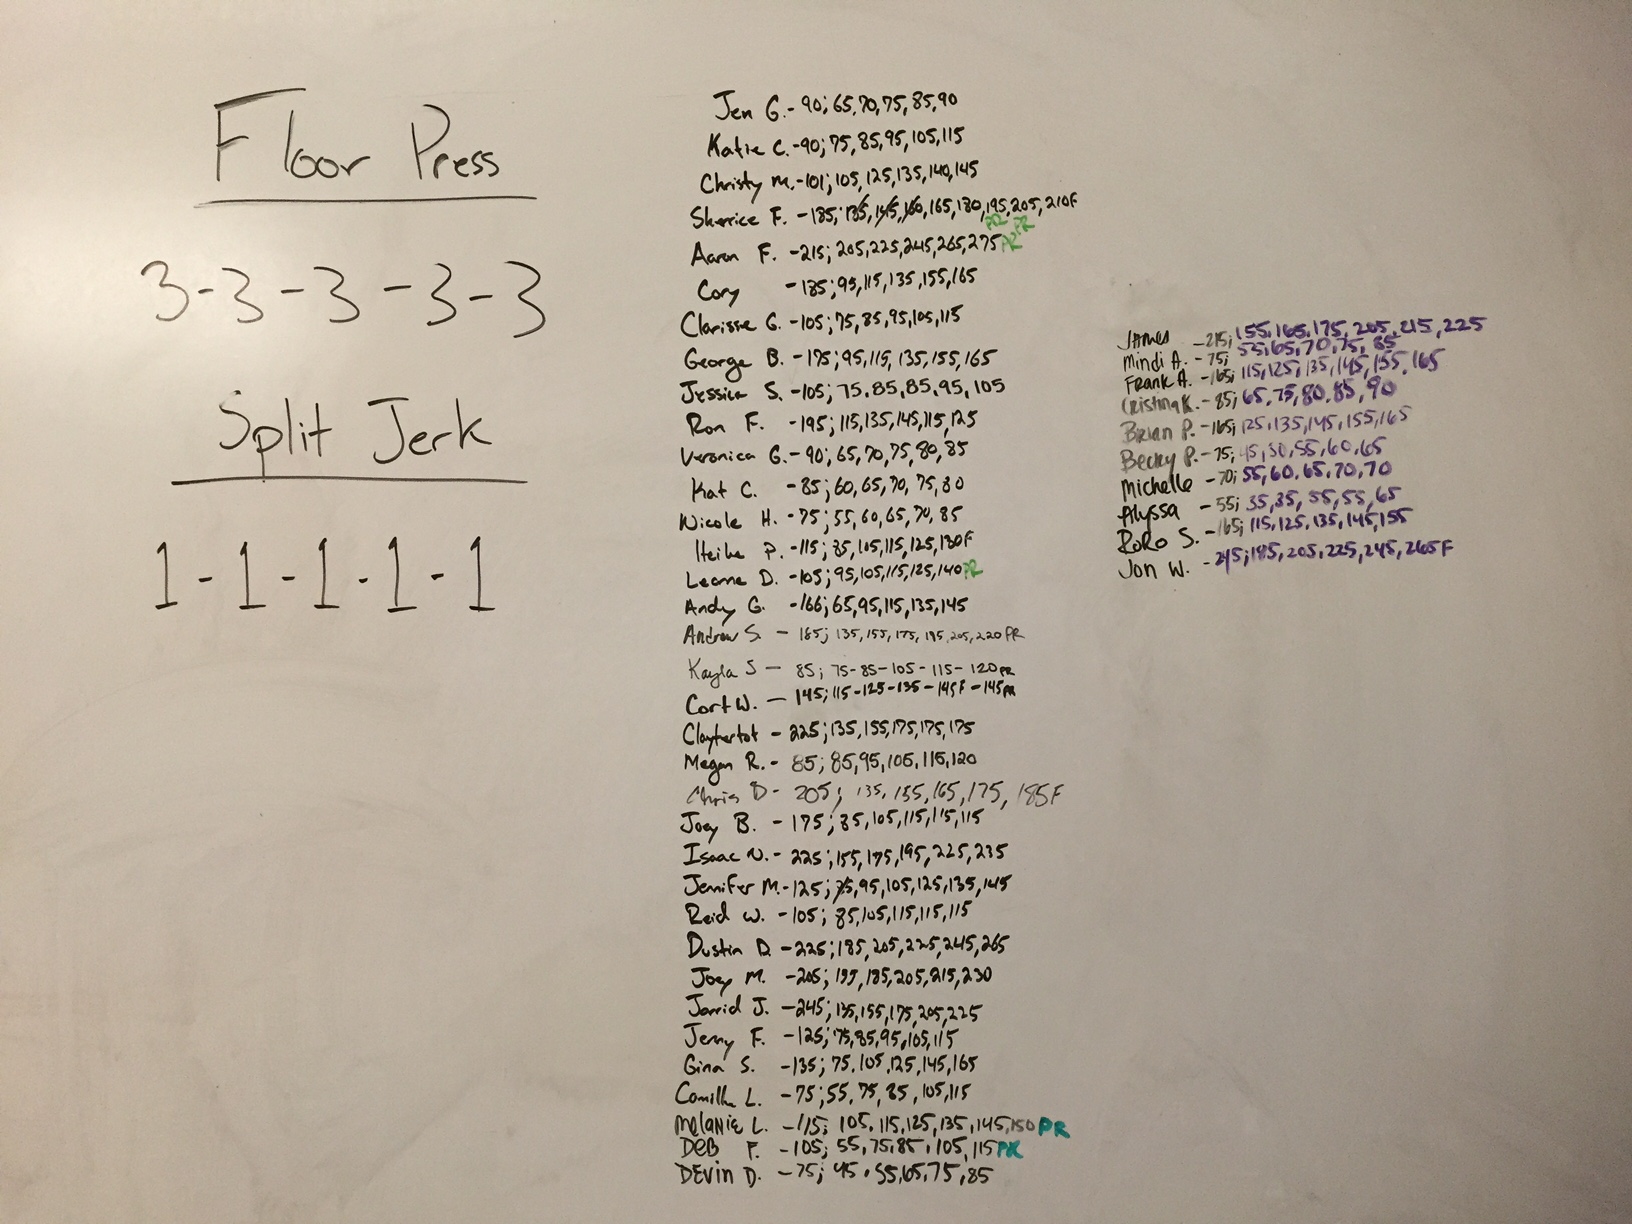 Floor Press
3-3-3-3-3
Split Jerk
1-1-1-1-1
Jen G. - 90; 65, 70, 75, 85, 90
Katie C. - 90; 75, 85, 95, 105, 115
Christy M. - 101; 105, 125, 135, 140, 145
Sherrice F. - 185; 135, 145, 160, 165, 180, 195, 205, 210F
PR PR
Aaron F. - 215; 205, 225, 245, 265, 275 PR
Cory - 185; 95, 115, 135, 155, 165
Clarisse G. - 105; 75, 85, 95, 105, 115
George B. - 175; 95, 115, 135, 155, 165
Jessica S. - 105; 75, 85, 85, 95, 105
Ron F. - 195; 115, 135, 145, 115, 125
Veronica G. - 90; 65, 70, 75, 80, 85
Kat C. - 85; 60, 65, 70, 75, 80
Nicole H. - 75; 55, 60, 65, 70, 85
Heike P. - 115; 85, 105, 115, 125, 130F
Leanne D. - 105; 95, 105, 115, 125, 140 PR
Andy G. - 166; 65, 95, 115, 135, 145
Andrew S. - 185; 135, 155, 175, 195, 205, 220 PR
Kayla S - 85; 75-85-105-115-120 PR
Cort W. - 145; 115-125-135-145F-145 PR
Claytertot - 225; 135, 155, 175, 175, 175
Megan R. - 85; 85, 95, 105, 115, 120
Chris D - 205; 135, 155, 165, 175, 185F
Joey B. - 175; 85, 105, 115, 115, 115
Isaac N. - 225; 155, 175, 195, 225, 235
Jennifer M. - 125; 75, 95, 105, 125, 135, 145
Reid W. - 105; 85, 105, 115, 115, 115
Dustin D. - 225; 185, 205, 225, 245, 265
Joey M. - 205; 185, 205, 215, 230
Jarrid J. - 245; 135, 155, 175, 205, 225
Jenny F. - 125; 75, 85, 95, 105, 115
Gina S. - 135; 75, 105, 125, 145, 165
Camille L. - 75; 55, 75, 85, 105, 115
Melanie L. - 115; 105, 115, 125, 135, 145, 150 PR
DEB F. - 105; 55, 75, 85, 105, 115 PR
DEVin D. - 75; 45, 55, 65, 75, 85
JAMES - 215; 155, 165, 175, 205, 215, 225
Mindi A. - 75; 55, 65, 70, 75, 85
FRANK A. - 165; 115, 125, 135, 145, 155, 165
Cristina K. - 85; 65, 75, 80, 85, 90
BRIAN P. - 165; 125, 135, 145, 155, 165
Becky P. - 75; 45, 50, 55, 60, 65
Michelle - 70; 55, 60, 65, 70, 70
Alyssa - 55; 35, 35, 55, 55, 65
RoRo S. - 165; 115, 125, 135, 145, 155
Jon W. - 245; 185, 205, 225, 245, 265F